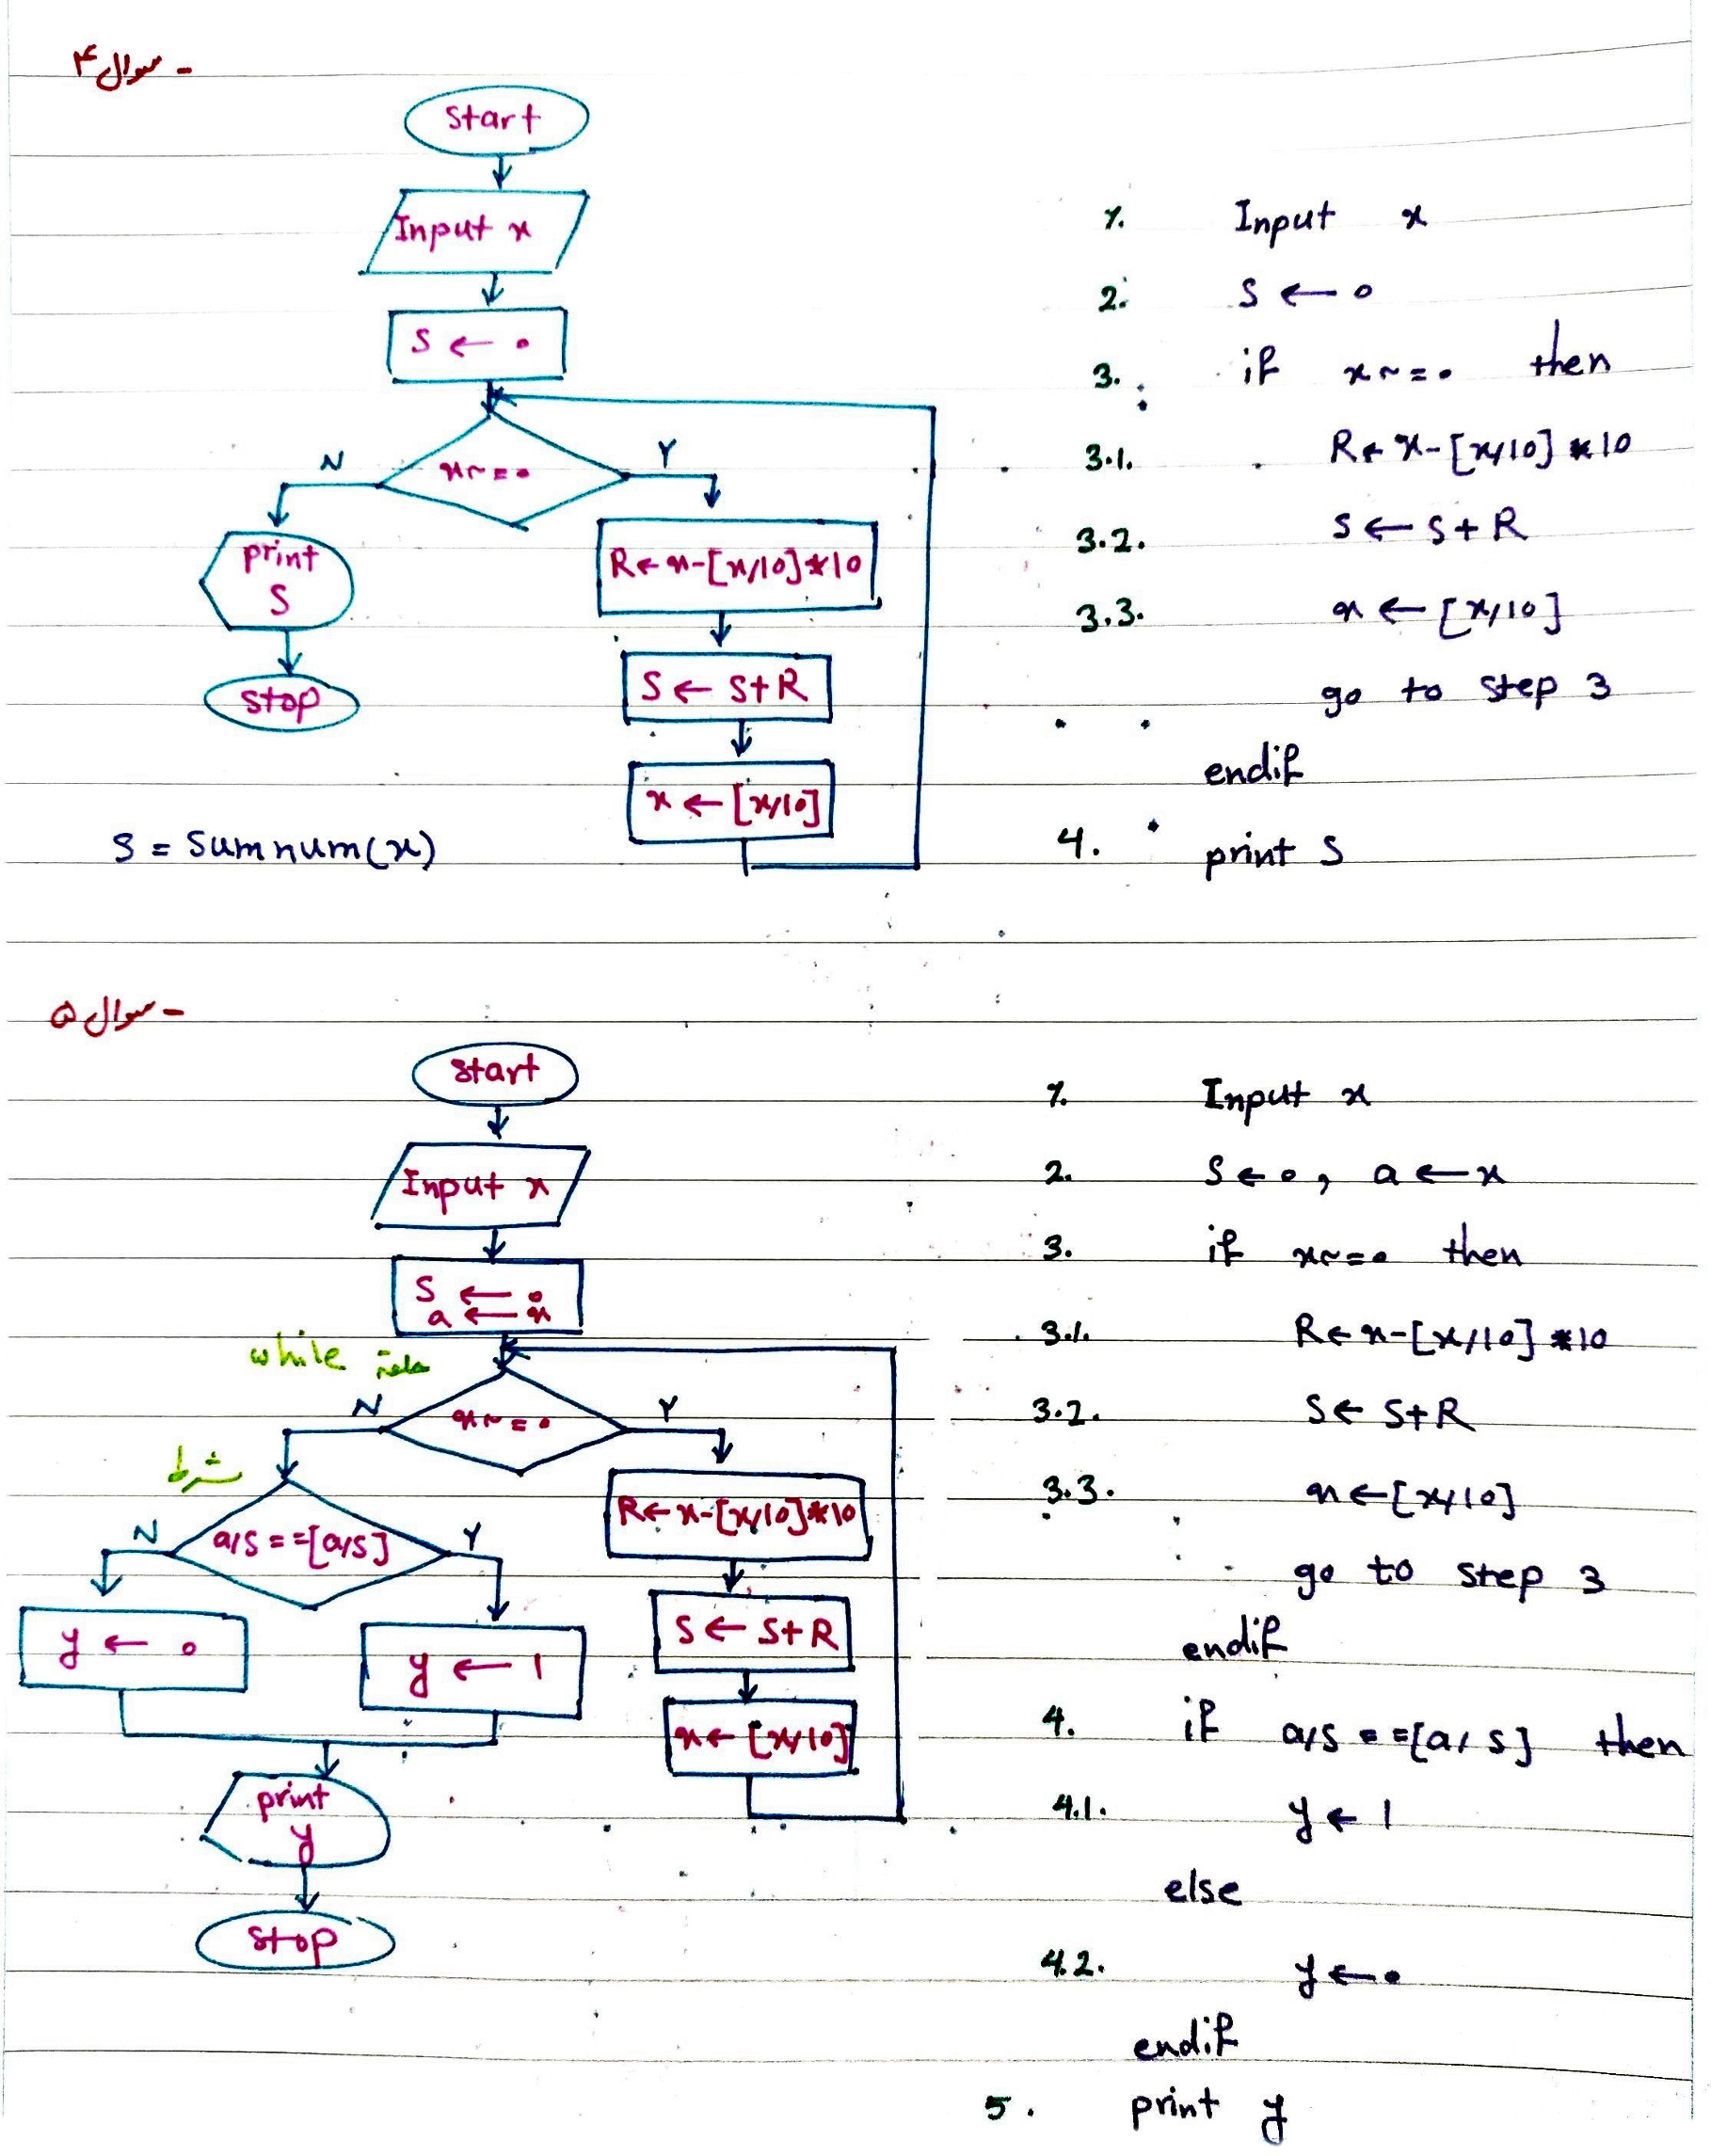 سوال ۴ -
start
Input x
S ← ۰
x ~ = ۰
N
Y
print
S
stop
R ← x-[x/10]*10
S ← S+R
x ← [x/10]
S = sumnum(x)
1. Input x
2. S ← 0
3. if x ~ = ۰ then
3.1. R ← x-[x/10]*10
3.2. S ← S+R
3.3. x ← [x/10]
go to step 3
endif
4. print S
سوال ۵ -
start
Input x
S ← 0
a ← x
while حلقه
x ~ = ۰
N
Y
شرط
a/S ==[a/S]
N
Y
y ← 0
y ← 1
print
y
stop
R ← x-[x/10]*10
S ← S+R
x ← [x/10]
1. Input x
2. S ← 0, a ← x
3. if x ~ = ۰ then
3.1. R ← x-[x/10]*10
3.2. S ← S+R
3.3. x ← [x/10]
go to step 3
endif
4. if a/S ==[a/S] then
4.1. y ← 1
else
4.2. y ← ۰
endif
5. print y